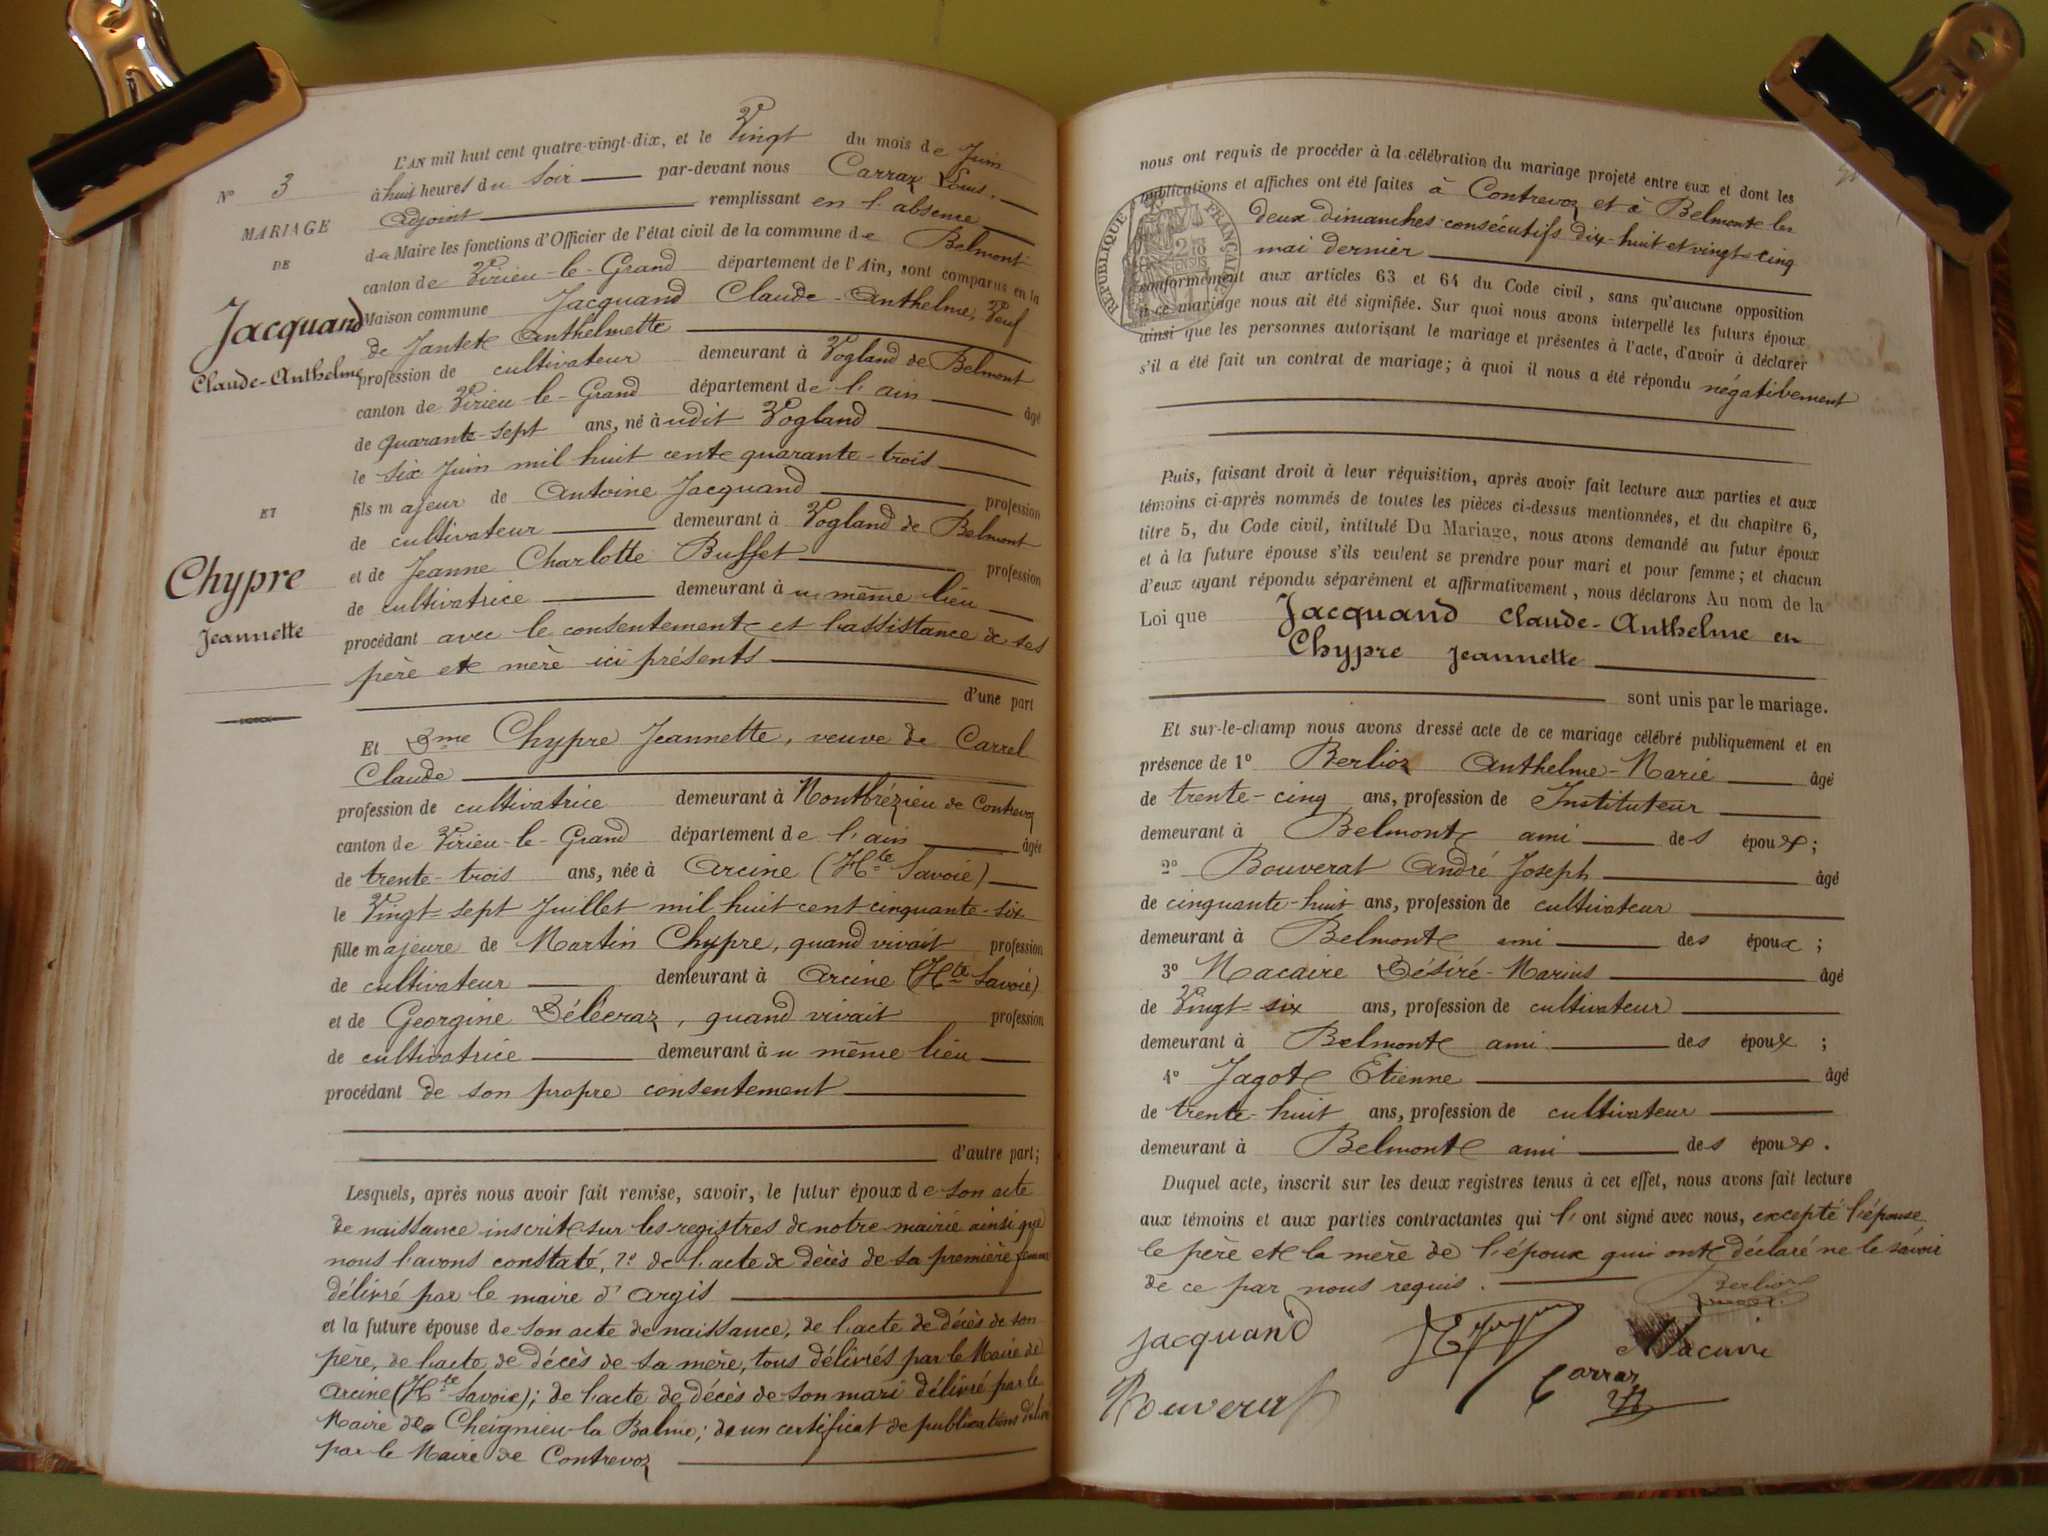 N° 3
MARIAGE
DE
Jacquand
Claude-Anthelme
ET
Chypre
Jeannette
L'AN mil huit cent quatre-vingt-dix, et le Vingt du mois de Juin
à huit heures du Soir par-devant nous Carraz Louis.
Adjoint remplissant en l'absence
de Maire les fonctions d'Officier de l'état civil de la commune de Belmont
canton de Virieu-le-Grand département de l'Ain, sont comparus en la
Maison commune Jacquand Claude-Anthelme, Veuf
de Jantet Anthelmette
profession de cultivateur demeurant à Vogland de Belmont
canton de Virieu le-Grand département de l'ain âgé
de quarante-sept ans, né à udit Vogland
le six Juin mil huit cent quarante-trois
fils majeur de Antoine Jacquand profession
de cultivateur demeurant à Vogland de Belmont
et de Jeanne Charlotte Buffet profession
de cultivatrice demeurant à u même lieu
procédant avec le consentement et l'assistance de ses
père et mère ici présents
d'une part
Et Dme Chypre Jeannette, veuve de Carrel
Claude
profession de cultivatrice demeurant à Montbrézieu de Contrevoz
canton de Virieu-le-Grand département de l'ain âgée
de trente-trois ans, née à Arcine (Hte Savoie)
le Vingt-sept Juillet mil huit cent cinquante-six
fille majeure de Martin Chypre, quand vivait profession
de cultivateur demeurant à Arcine (Hte Savoie)
et de Georgine Délécraz, quand vivait profession
de cultivatrice demeurant à u même lieu
procédant de son propre consentement
d'autre part;
Lesquels, après nous avoir fait remise, savoir, le futur époux de son acte
de naissance inscrit sur les registres de notre mairie ainsi que
nous l'avons constaté, 2° de l'acte de décès de sa première femme
délivré par le maire d'Argis
et la future épouse de son acte de naissance, de l'acte de décès de son
père, de l'acte de décès de sa mère, tous délivrés par le Maire de
Arcine (Hte Savoie); de l'acte de décès de son mari délivré par le
Maire de Cheignieu-la Balme; de un certificat de publications délivré
par le Maire de Contrevoz
nous ont requis de procéder à la célébration du mariage projeté entre eux et dont les
publications et affiches ont été faites à Contrevoz et à Belmont les
deux dimanches consécutifs dix-huit et vingt-cinq
mai dernier
RÉPUBLIQUE FRANÇAISE
conformément aux articles 63 et 64 du Code civil, sans qu'aucune opposition
à ce mariage nous ait été signifiée. Sur quoi nous avons interpellé les futurs époux
ainsi que les personnes autorisant le mariage et présentes à l'acte, d'avoir à déclarer
s'il a été fait un contrat de mariage; à quoi il nous a été répondu négativement
Puis, faisant droit à leur réquisition, après avoir fait lecture aux parties et aux
témoins ci-après nommés de toutes les pièces ci-dessus mentionnées, et du chapitre 6,
titre 5, du Code civil, intitulé Du Mariage, nous avons demandé au futur époux
et à la future épouse s'ils veulent se prendre pour mari et pour femme; et chacun
d'eux ayant répondu séparément et affirmativement, nous déclarons Au nom de la
Loi que Jacquand Claude-Anthelme en
Chypre Jeannette
sont unis par le mariage.
Et sur-le-champ nous avons dressé acte de ce mariage célébré publiquement et en
présence de 1° Berlioz Anthelme-Marie âgé
de trente-cinq ans, profession de Instituteur
demeurant à Belmont ami des époux;
2° Bouverat André Joseph âgé
de cinquante-huit ans, profession de cultivateur
demeurant à Belmont ami des époux;
3° Macaire Désiré-Marius âgé
de Vingt six ans, profession de cultivateur
demeurant à Belmont ami des époux;
4° Jagot Etienne âgé
de trente-huit ans, profession de cultivateur
demeurant à Belmont ami des époux.
Duquel acte, inscrit sur les deux registres tenus à cet effet, nous avons fait lecture
aux témoins et aux parties contractantes qui l'ont signé avec nous, excepté l'épouse
le père et la mère de l'époux qui ont déclaré ne le savoir
de ce par nous requis.
Berlioz
Jacquand
Macaire
Carraz
Bouverat